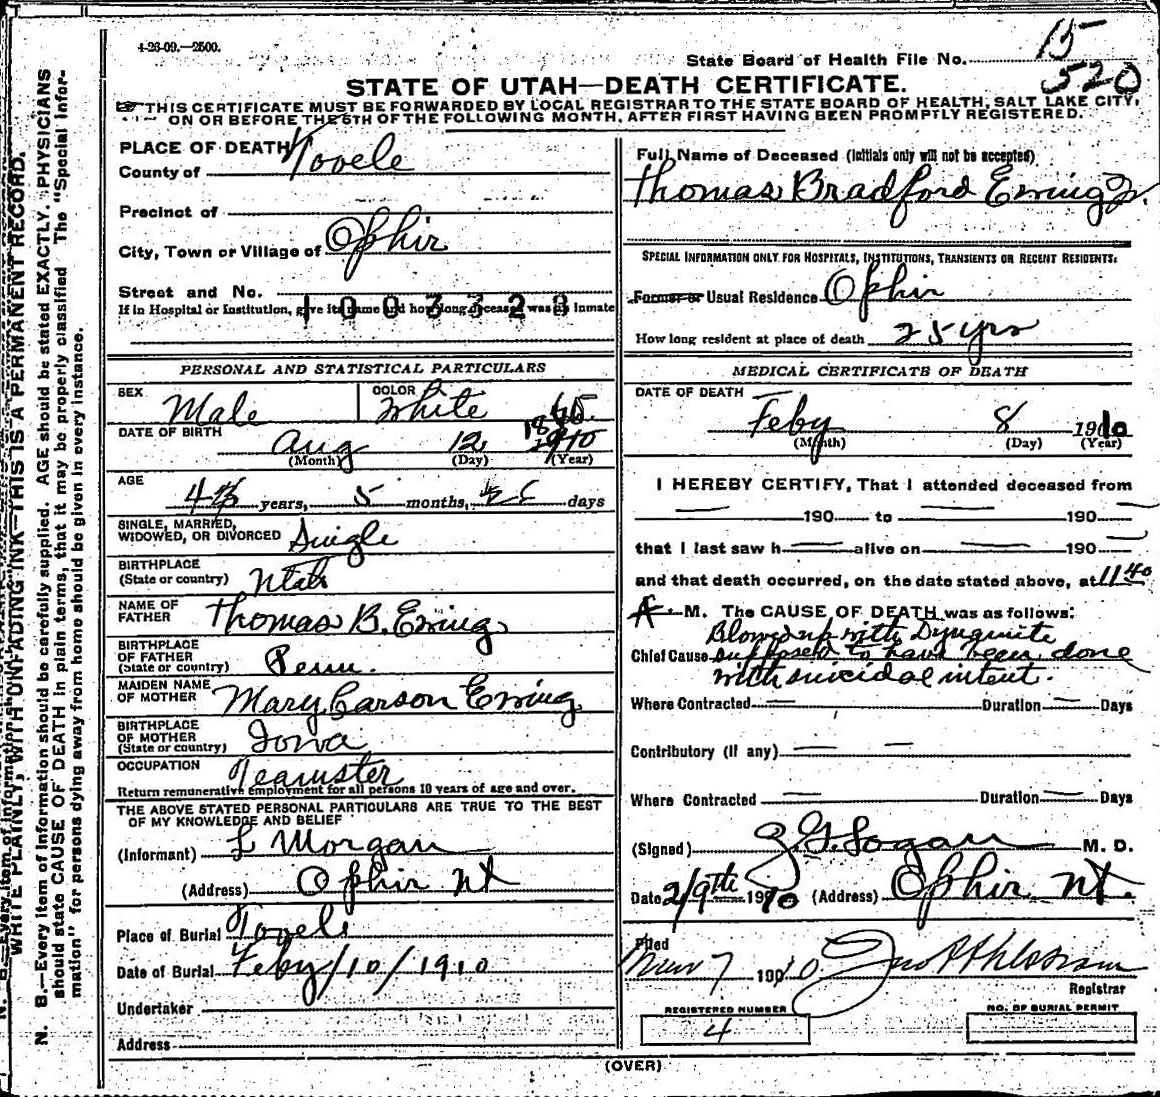 4-26-09.—2500.
State Board of Health File No. 15
520
STATE OF UTAH—DEATH CERTIFICATE.
THIS CERTIFICATE MUST BE FORWARDED BY LOCAL REGISTRAR TO THE STATE BOARD OF HEALTH, SALT LAKE CITY,
ON OR BEFORE THE 5TH OF THE FOLLOWING MONTH, AFTER FIRST HAVING BEEN PROMPTLY REGISTERED.
PLACE OF DEATH
County of Tooele
Precinct of
City, Town or Village of Ophir
Street and No.
1007323
If in Hospital or Institution, give its name and how long deceased was an inmate
PERSONAL AND STATISTICAL PARTICULARS
SEX Male COLOR White
DATE OF BIRTH Aug 12 1865
(Month) (Day) (Year)
AGE
years, 5 months, days
SINGLE, MARRIED,
WIDOWED, OR DIVORCED Single
BIRTHPLACE
(State or country) Utah
NAME OF
FATHER Thomas B. Ewing
BIRTHPLACE
OF FATHER
(State or country) Penn.
MAIDEN NAME
OF MOTHER Mary Carson Ewing
BIRTHPLACE
OF MOTHER
(State or country) Iowa
OCCUPATION Teamster
Return remunerative employment for all persons 10 years of age and over.
THE ABOVE STATED PERSONAL PARTICULARS ARE TRUE TO THE BEST
OF MY KNOWLEDGE AND BELIEF
(Informant) L Morgan
(Address) Ophir Ut
Place of Burial Tooele
Date of Burial Feby/10/1910
Undertaker
Address
Full Name of Deceased (Initials only will not be accepted)
Thomas Bradford Ewing Jr.
SPECIAL INFORMATION ONLY FOR HOSPITALS, INSTITUTIONS, TRANSIENTS OR RECENT RESIDENTS:
Former or Usual Residence Ophir
How long resident at place of death 25 yrs
MEDICAL CERTIFICATE OF DEATH
DATE OF DEATH
Feby 8 1910
(Month) (Day) (Year)
I HEREBY CERTIFY, That I attended deceased from
190 to 190
that I last saw h alive on 190
and that death occurred, on the date stated above, at 11 40
A. M. The CAUSE OF DEATH was as follows:
Blowed up with Dynamite
Chief Cause supposed to have been done
with suicidal intent.
Where Contracted Duration Days
Contributory (If any)
Where Contracted Duration Days
(Signed) Logan M. D.
Date 2/9th 1910 (Address) Ophir Ut.
Filed
7 1910
Registrar
REGISTERED NUMBER
4
NO. OF BURIAL PERMIT
(OVER)
WRITE PLAINLY, WITH UNFADING INK—THIS IS A PERMANENT RECORD.
N. B.—Every item of information should be carefully supplied. AGE should be stated EXACTLY. PHYSICIANS
should state CAUSE OF DEATH in plain terms, that it may be properly classified. The "Special Infor-
mation" for persons dying away from home should be given in every instance.